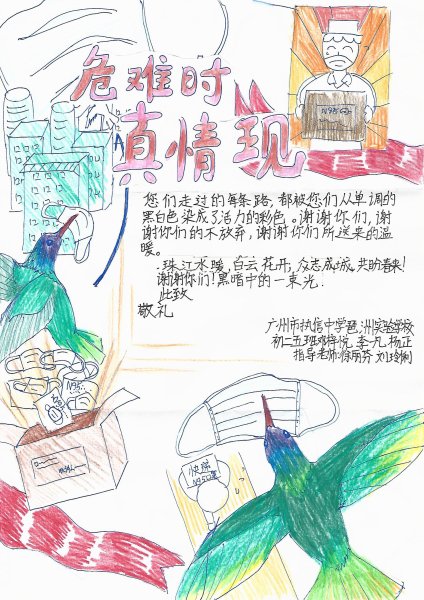 危难时
真情现
N95口罩
您们走过的每条路,都被您们从单调的
黑白色染成了活力的彩色。谢谢你们,谢
谢你们的不放弃,谢谢你们所送来的温
暖。
珠江水暖,白云花开,众志成城,共盼春来!
谢谢你们!黑暗中的一束光.
此致
敬礼
广州市执信中学琶洲实验学校
初二五班邓梓悦 李一凡 杨正
指导老师:徐丽芬 刘玲俐
N95
快递
N95口罩